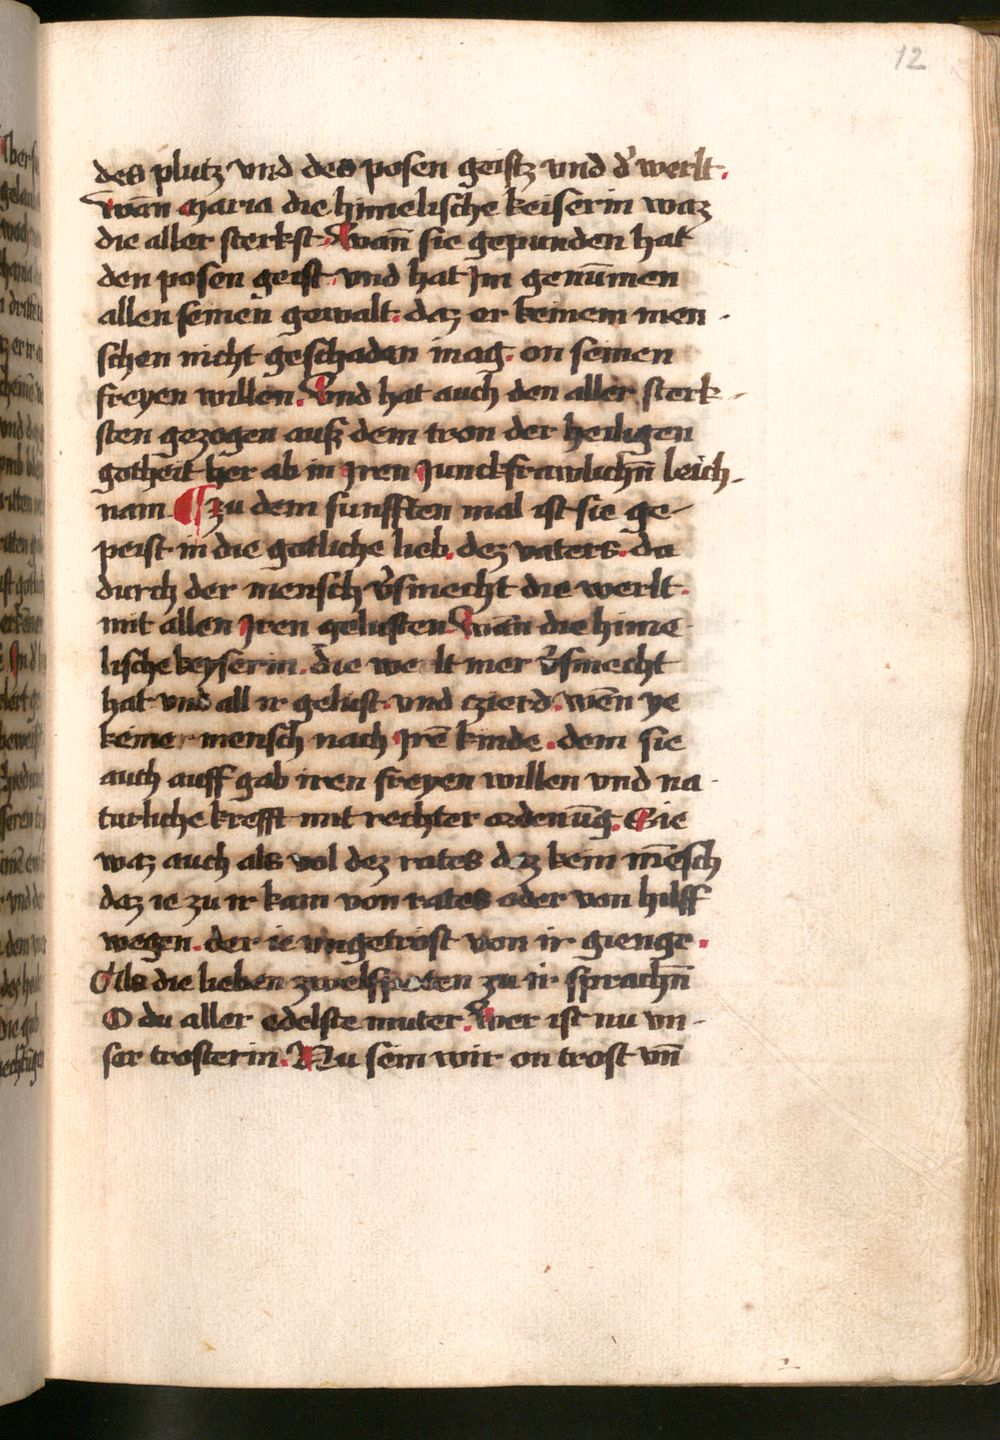 12
des plutz vnd des posen geistz vnd d̕ werlt.
wān maria die himelische keiserin waz
die aller sterkst. Wan̄ sie gepunden hat
den posen geist. vnd hat Jm genūmen
allen seinen gewalt. daz er keinem men-
schen nicht geschaden mag. on seinen
freyen willen. Vnd hat auch den aller sterk-
sten gezogen auß dem tron der heiligen
gotheit her ab in Jren Junckfrawlichn̄ leich-
nam ¶ zu dem funfften mal ist sie ge-
peist in die gotliche lieb. dez vaters. da
durch der mensch v̕smecht die werlt.
mit allen Jren gelusten. Wān die hime-
lische keyserin. die welt mer v̕smecht
hat vnd all ir gelust. vnd czierd. wēn ye
keiner mensch nach Jrē kinde. dem sie
auch auff gab iren freyen willen vnd na-
turliche krefft mit rechter ordenūg. Sie
waz auch als vol dez rates daz kein mēsch
daz ie zu ir kam von rates oder von hilff
wegen. der ie vngetrost von ir gienge.
Als die lieben zwelfpoten zu ir sprachn̄
O du aller edelste muter. Wer ist nu vn-
ser trosterin. Nu sein wir on trost vn̄